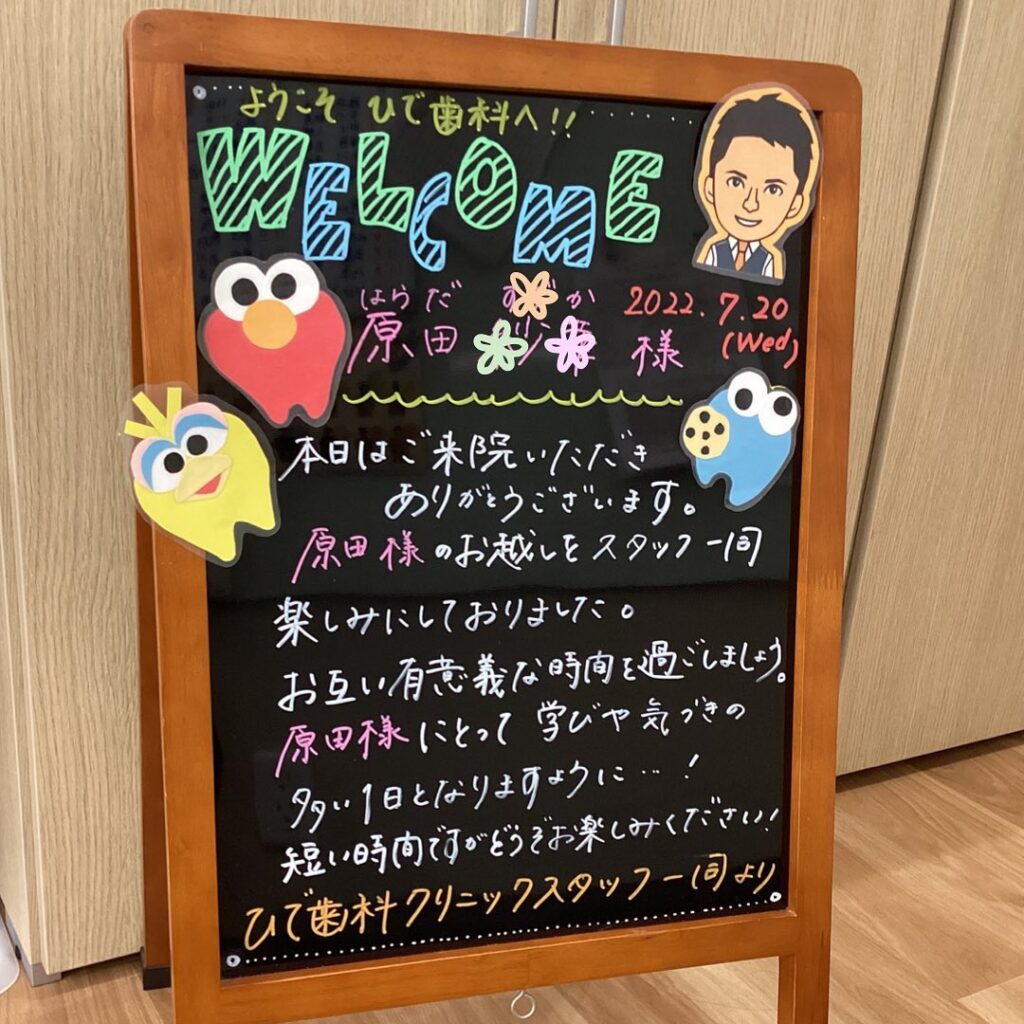 ようこそ ひで歯科へ!!
WELCOME
はらだ
原田 様
2022.7.20
(Wed)
本日はご来院いただき
ありがとうございます。
原田様のお越しをスタッフ一同
楽しみにしておりました。
お互い有意義な時間を過ごしましょう。
原田様にとって学びや気づきの
多い1日となりますように…!
短い時間ですがどうぞお楽しみください!
ひで歯科クリニックスタッフ一同より